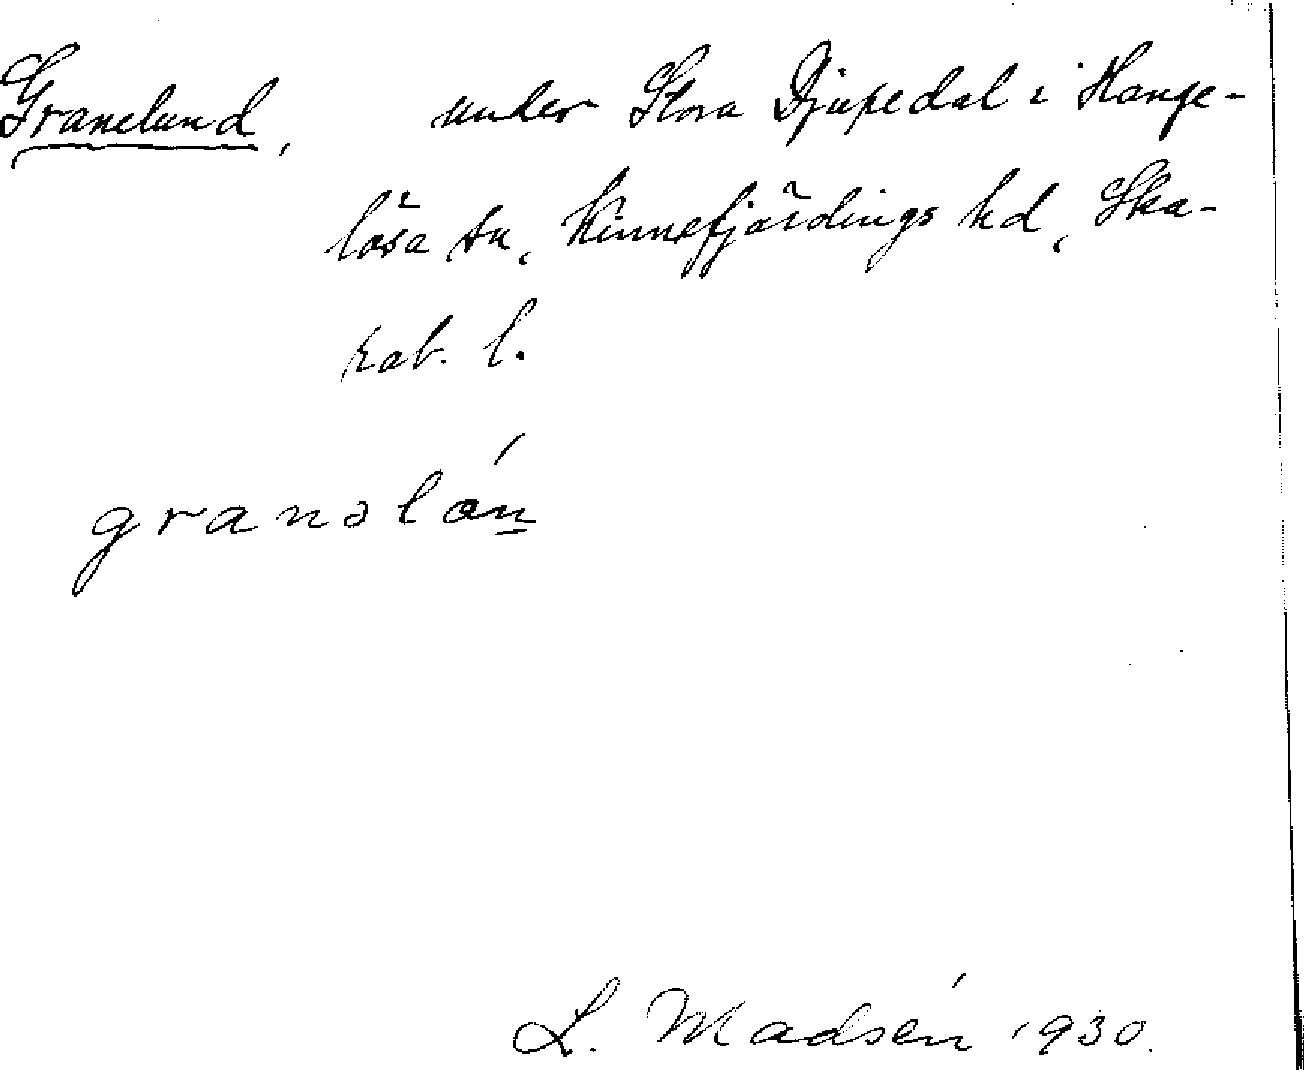 Granelund, under Stora Djupedal i Hange-
lösa sn, Kinnefjärdings hd, Ska-
rab. l.
granəlán̲
L. Madsén 1930.